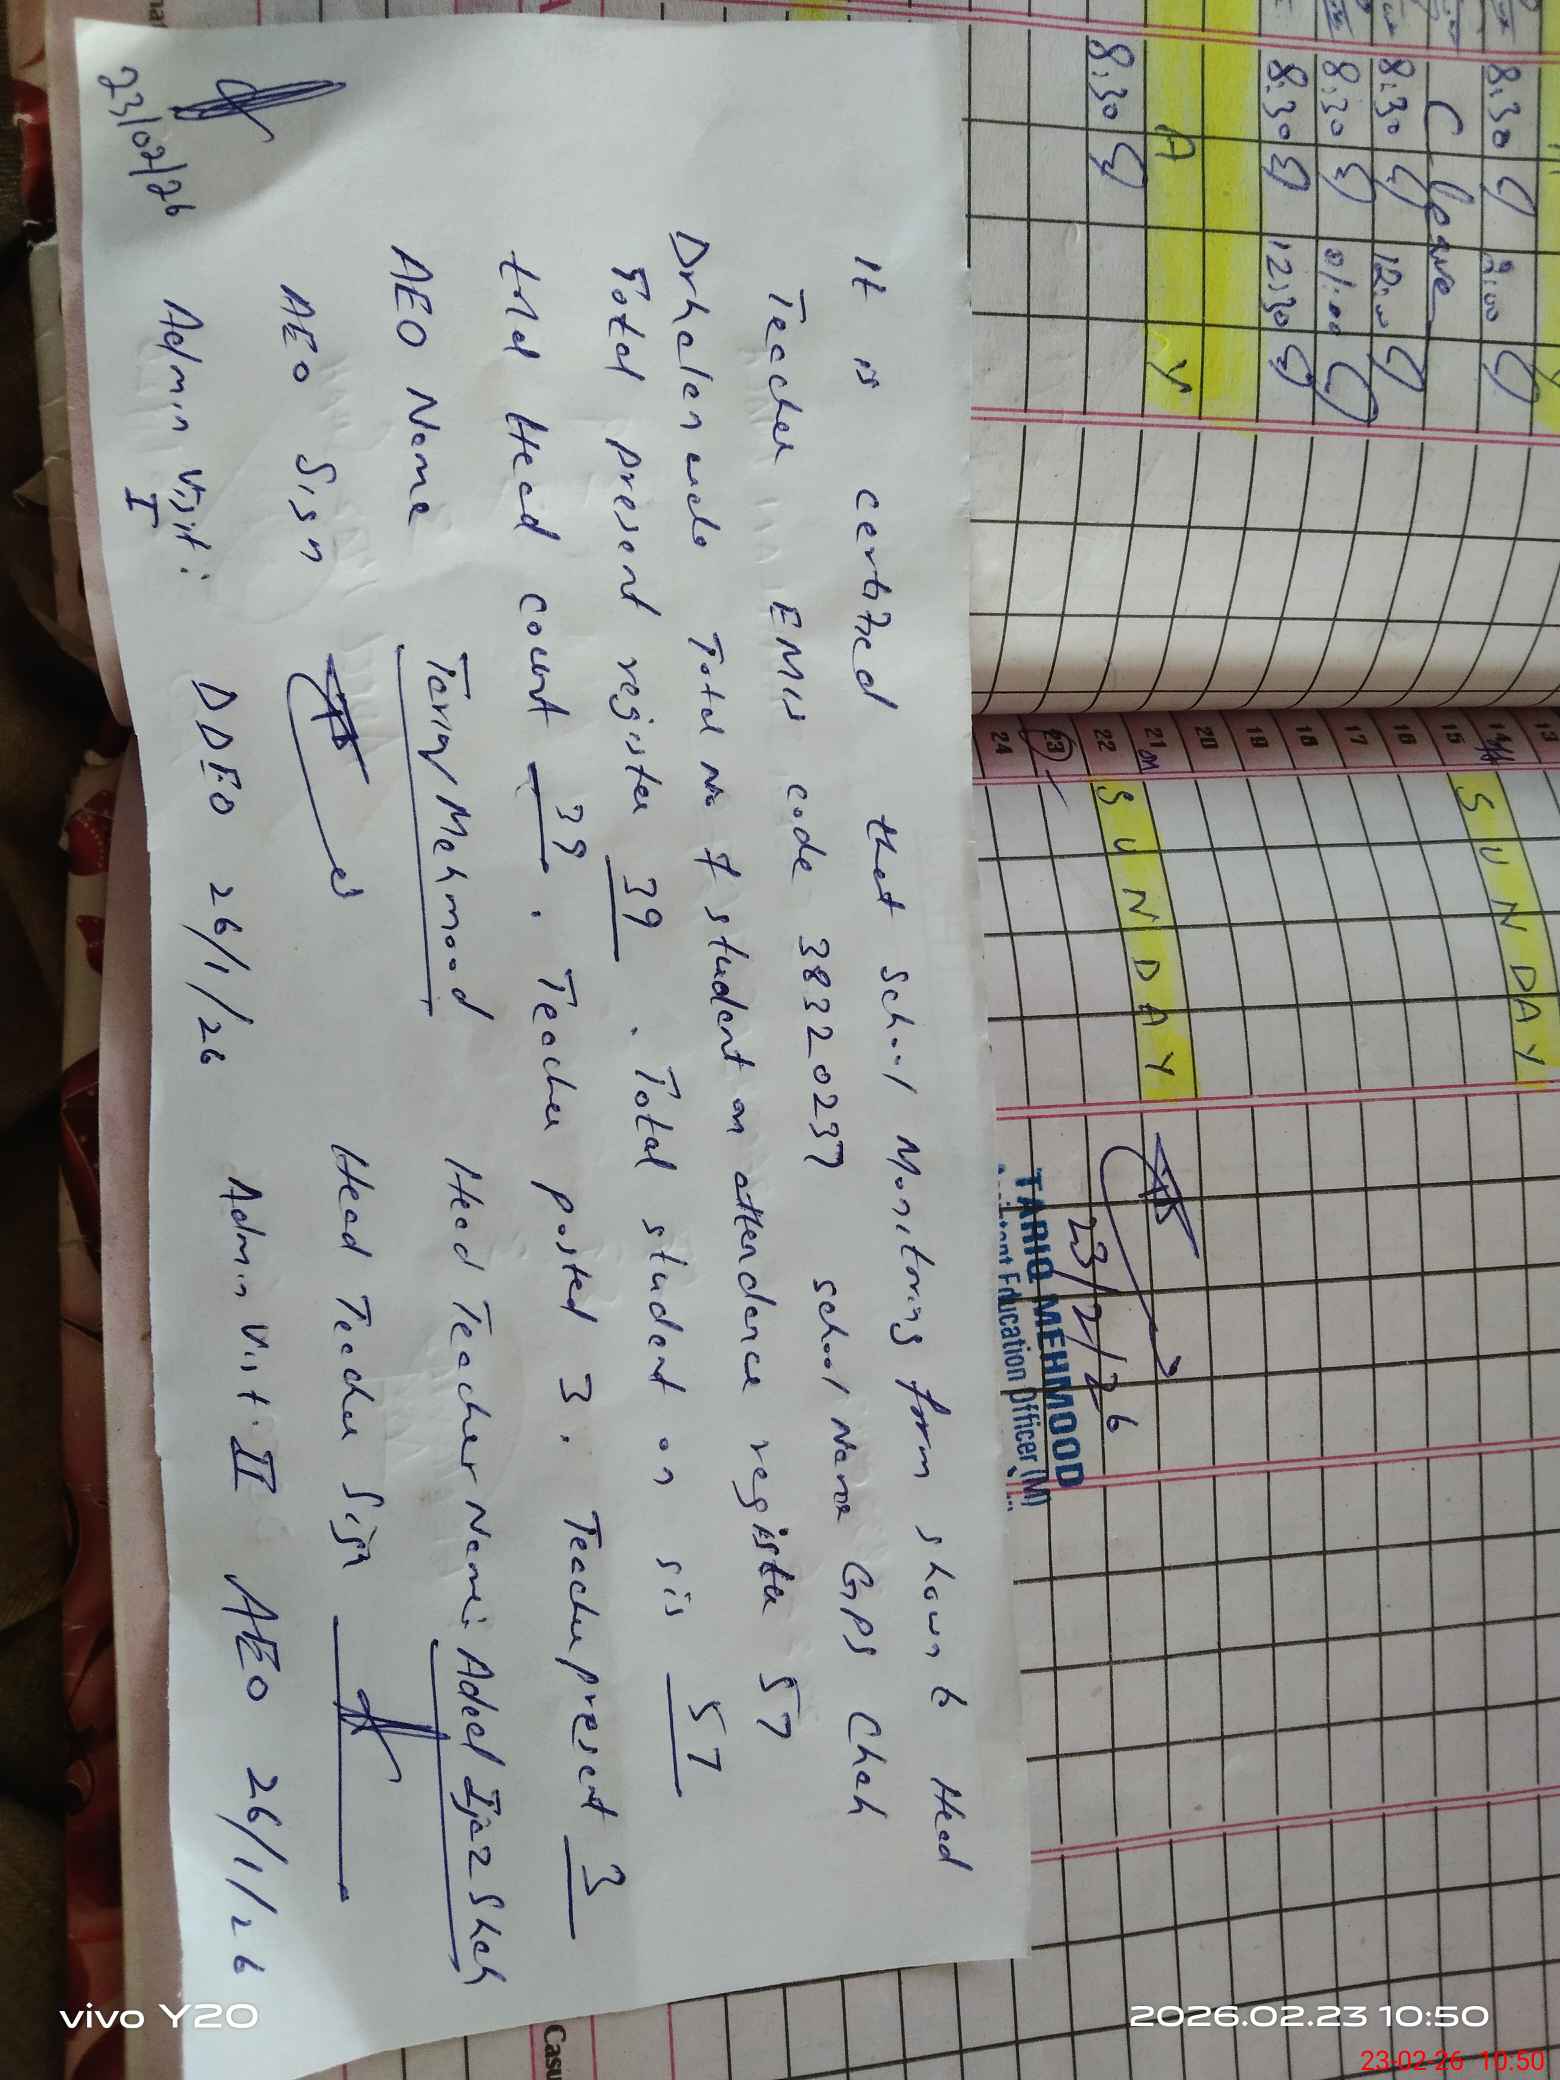 It is certified that School Monitoring form shown to Head
Teacher EMIS code 38320237 school Name GPS Chah
Total No of student on attendence register 57
Total present register 39. Total student on sis 57
Head count 39. Teacher posted 3. Teacher present 3
AEO Name Tariq Mehmood Head Teacher Name: Adeel Ijaz Shah
AEO Sign Head Teacher Sign
Admin Visit: I DDEO 26/1/26 Admin Visit II AEO 26/1/26
23/02/26
8:30
8:30 12:30
8:30 01:00
8:30 12:00
C leave
8:30 2:00
A Y
13
14
15
16
17
18
19
20
21
22
23
24
SUNDAY
SUNDAY
23/2/26
TARIQ MEHMOOD
Education Officer (M)
Casu
vivo Y20
2026.02.23 10:50
23-02-26 10:50